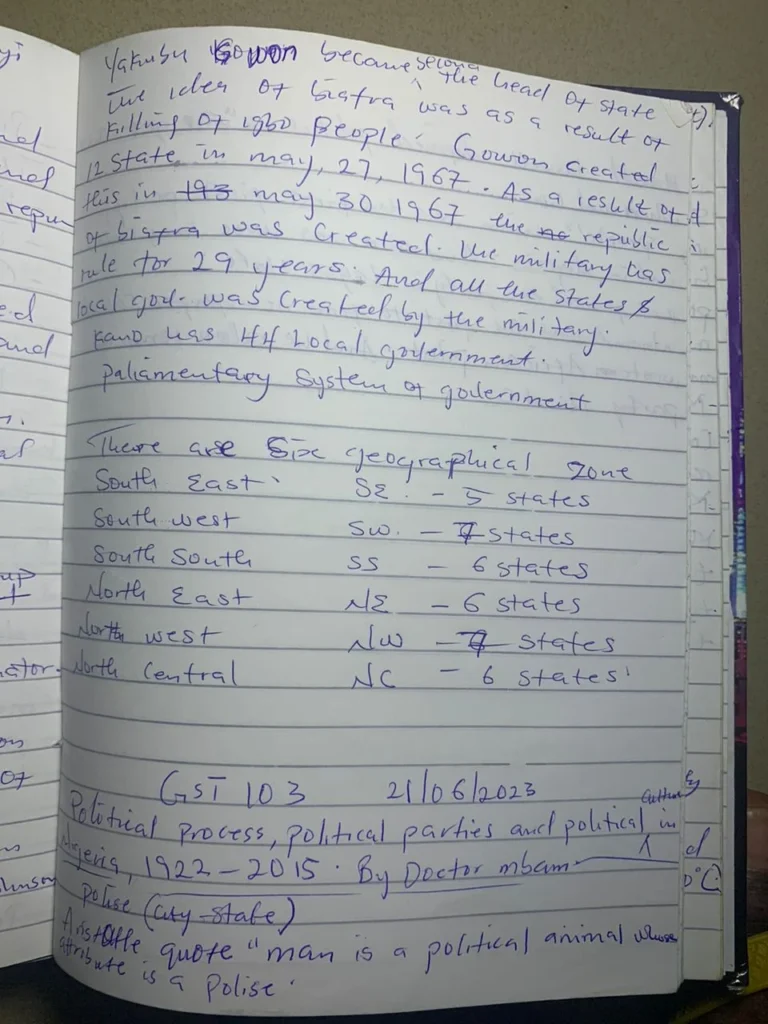 Yakubu Gowon became second the head of state
The idea of biafra was as a result of
killing of igbo people. Gowon created
12 state in may, 27, 1967. As a result of
this in 193 may 30 1967 the republic
of biafra was created. The military has
rule for 29 years. And all the states &
local govt. was created by the military.
Kano has 44 Local government.
Paliamentary system of government
There are Six geographical zone
South East. SE. - 5 states
South west SW. - 7 states
South South SS - 6 states
North East NE - 6 states
North west NW - 7 states
North Central NC - 6 states.
GST 103 21/06/2023
Political process, political parties and political culture in
Nigeria, 1922 - 2015. By Doctor mbam
polise (city-state)
Aristotle quote "man is a political animal whose
attribute is a polise.
repu
ator
°C